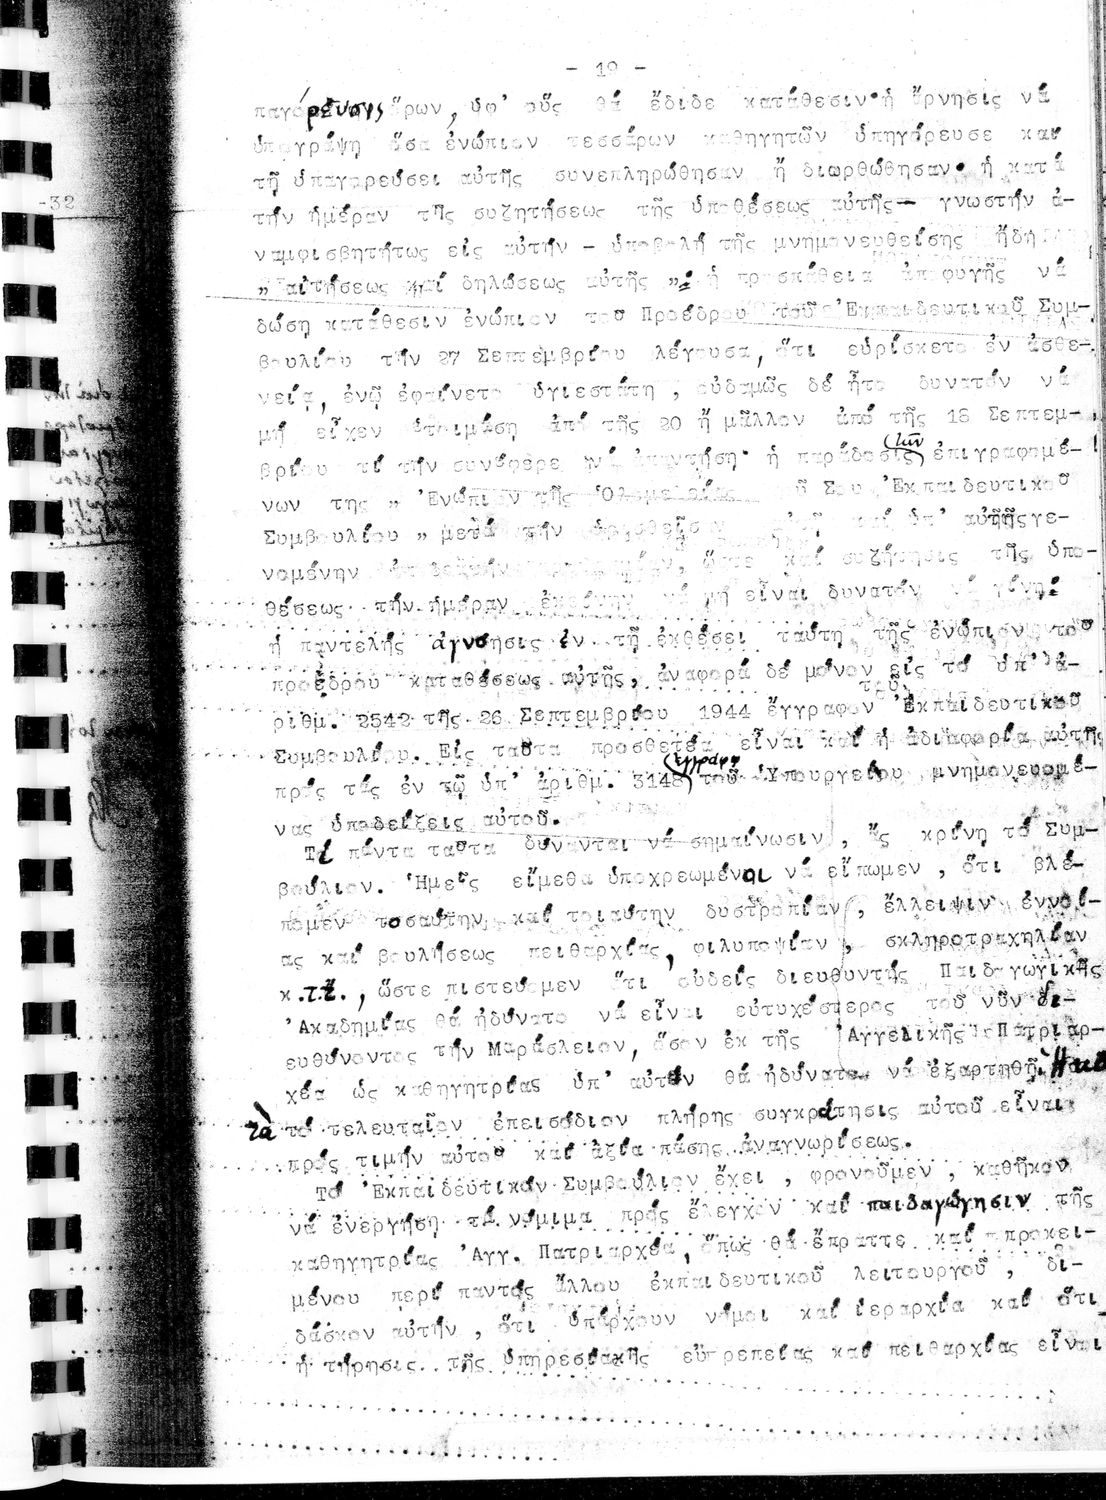 - 19 -
παγόρευσις ὅρων, ὑφ' οὕς θά ἔδιδε κατάθεσιν· ἡ ἄρνησις νά
ὑπογράψῃ ὅσα ἐνώπιον τεσσάρων καθηγητῶν ὑπηγόρευσε καί
τῇ ὑπαγορεύσει αὐτῆς συνεπληρώθησαν ἤ διωρθώθησαν· ἡ κατά
-32
τήν ἡμέραν τῆς συζητήσεως τῆς ὑποθέσεως αὐτῆς- γνωστήν ἀ-
ναμφισβητήτως εἰς αὐτήν - ὑποβολή τῆς μνημονευθείσης ἤδη
„ αἰτήσεως καί δηλώσεως αὐτῆς „· ἡ προσπάθεια ἀποφυγῆς νά
δώσῃ κατάθεσιν ἐνώπιον τοῦ Προέδρου τοῦ Ἐκπαιδευτικοῦ Συμ-
βουλίου τήν 27 Σεπτεμβρίου λέγουσα, ὅτι εὑρίσκετο ἐν ἀσθε-
νείᾳ, ἐνῷ ἐφαίνετο ὑγιεστάτη, οὐδαμῶς δέ ἦτο δυνατόν νά
μή εἶχεν ἑτοιμάσῃ ἀπό τῆς 20 ἤ μᾶλλον ἀπό τῆς 18 Σεπτεμ-
βρίου τί τήν συνέφερε νά ἀπαντήσῃ· ἡ παράδοσις τῶν ἐπιγραφομέ-
νων της „ Ἐνώπιον τῆς Ὁλομελείας τοῦ Σου Ἐκπαιδευτικοῦ
Συμβουλίου „ μετά τήν καί ὑπ' αὐτῆς γε-
νομένην ὥστε καί συζήτησις τῆς ὑπο-
θέσεως τήν ἡμέραν ἐκείνην νά μή εἶναι δυνατόν νά γίνῃ·
ἡ παντελής ἀγνόησις ἐν τῇ ἐκθέσει ταύτῃ τῆς ἐνώπιον τοῦ
προέδρου καταθέσεως αὐτῆς, ἀναφορά δέ μόνον εἰς τό ὑπ' ἀ-
ριθμ. 2542 τῆς 26 Σεπτεμβρίου 1944 ἔγγραφον τοῦ Ἐκπαιδευτικοῦ
Συμβουλίου. Εἰς ταῦτα προσθετέα εἶναι καί ἡ ἀδιαφορία αὐτῆς
πρός τάς ἐν τῷ ὑπ' ἀριθμ. 3148 ἐγγράφῳ τοῦ Ὑπουργείου μνημονευομέ-
νας ὑποδείξεις αὐτοῦ.
Τί πάντα ταῦτα δύνανται νά σημαίνωσιν, ἄς κρίνῃ τό Συμ-
βούλιον. Ἡμεῖς εἴμεθα ὑποχρεωμένοι νά εἴπωμεν, ὅτι βλέ-
πομεν τοσαύτην καί τοιαύτην δυστροπίαν, ἔλλειψιν ἐννοί-
ας καί βουλήσεως πειθαρχίας, φιλυποψίαν, σκληροτραχηλίαν
κ.τ.τ., ὥστε πιστεύομεν ὅτι οὐδείς διευθυντής Παιδαγωγικῆς
Ἀκαδημίας θά ἠδύνατο νά εἶναι εὐτυχέστερος τοῦ νῦν δι-
ευθύνοντος τήν Μαράσλειον, ὅσον ἐκ τῆς Ἀγγελικῆς Πατριαρ-
χέα ὡς καθηγητρίας ὑπ' αὐτόν θά ἠδύνατο νά ἐξαρτηθῇ. Ἡ κα-
τά τό τελευταῖον ἐπεισόδιον πλήρης συγκράτησις αὐτοῦ εἶναι
πρός τιμήν αὐτοῦ καί ἀξία πάσης ἀναγνωρίσεως.
Τό Ἐκπαιδευτικόν Συμβούλιον ἔχει, φρονοῦμεν, καθῆκον
νά ἐνεργήσῃ τά νόμιμα πρός ἔλεγχον καί παιδαγώγησιν τῆς
καθηγητρίας Ἀγγ. Πατριαρχέα, ὅπως θά ἔπραττε καί προκει-
μένου περί παντός ἄλλου ἐκπαιδευτικοῦ λειτουργοῦ, δι-
δάσκον αὐτήν, ὅτι ὑπάρχουν νόμοι καί ἱεραρχία καί ὅτι
ἡ τήρησις τῆς ὑπηρεσιακῆς εὐπρεπείας καί πειθαρχίας εἶναι